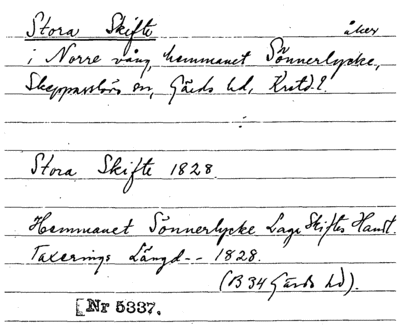 Stora Skifte åker
i Norre vång, hemmanet Sönnerlycke,
Skepparslövs sn, Gärds hd, Krstd. l.
Stora Skifte 1828
Hemmanet Sönnerlycke Laga Skiftes Handl.
Taxerings Längd-- 1828.
(B 34 Gärds hd).
[Nr 5337.